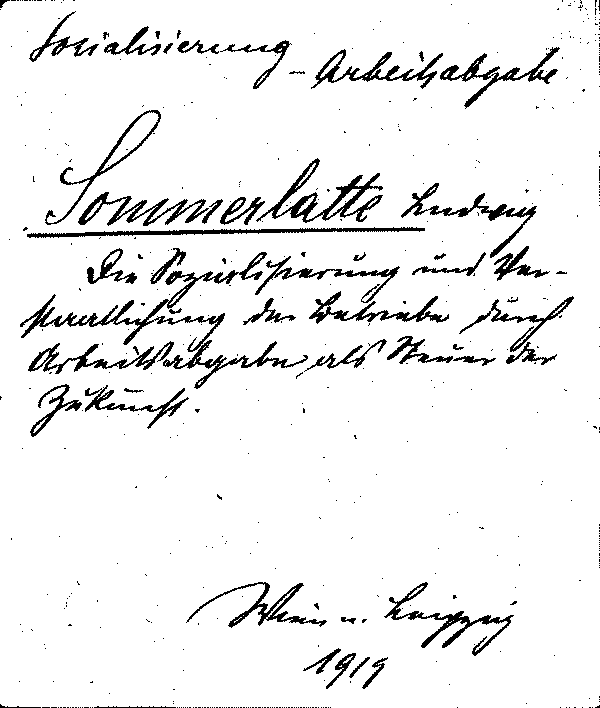 Sozialisierung
– Arbeitsabgabe
Sommerlatte Ludwig
Die Sozialisierung und Ver-
staatlichung der Betriebe durch
Arbeitsabgabe als Steuer der
Zukunft.
Wien u. Leipzig
1919